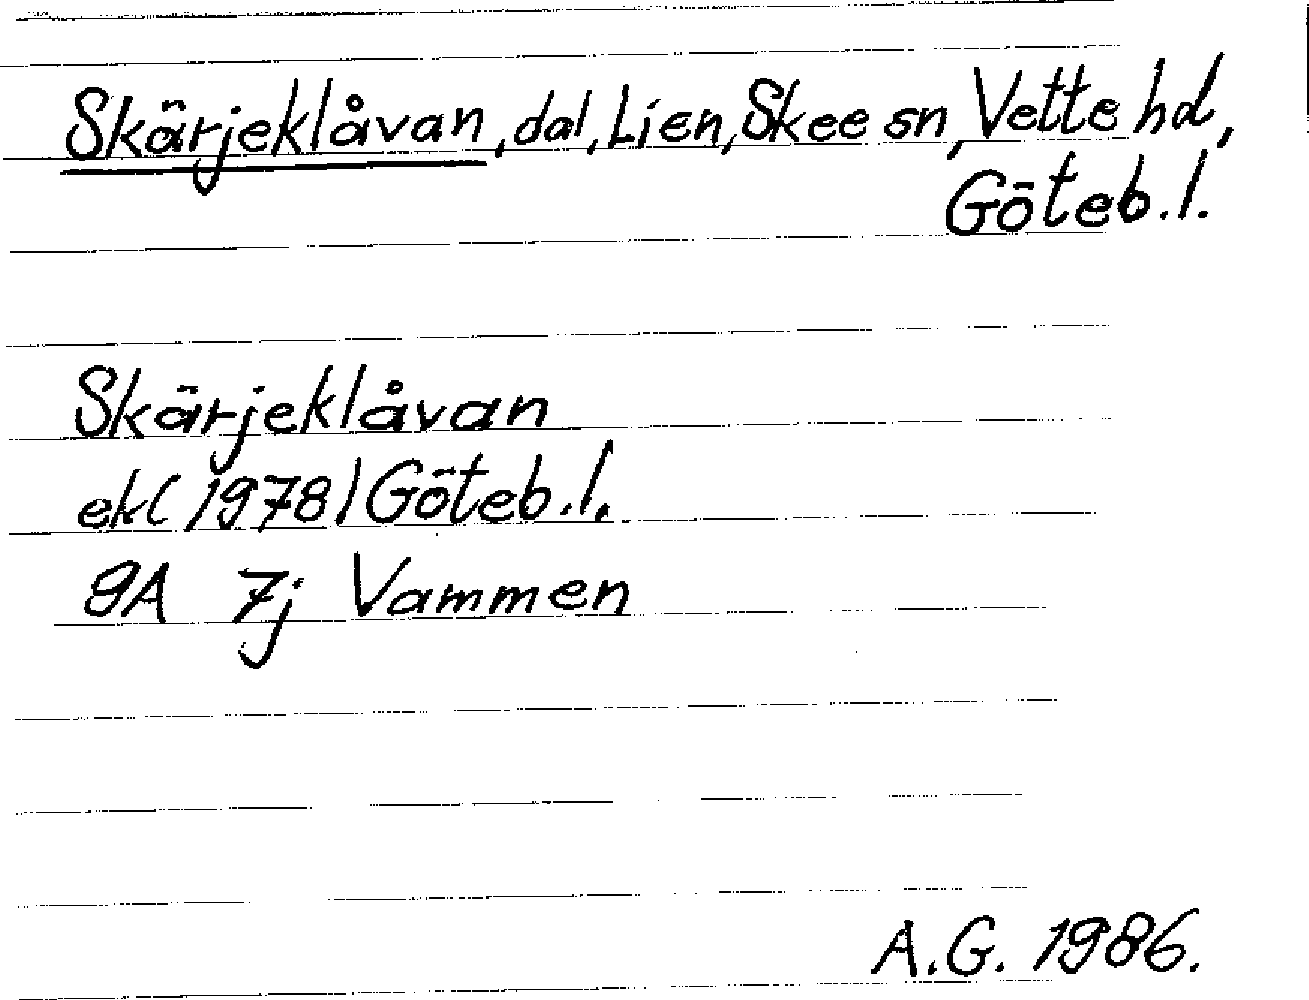 Skärjeklåvan, dal, Lien, Skee sn, Vette hd,
Göteb. l.
Skärjeklåvan
ek (1978) Göteb. l.
9A 7j Vammen
A.G. 1986.